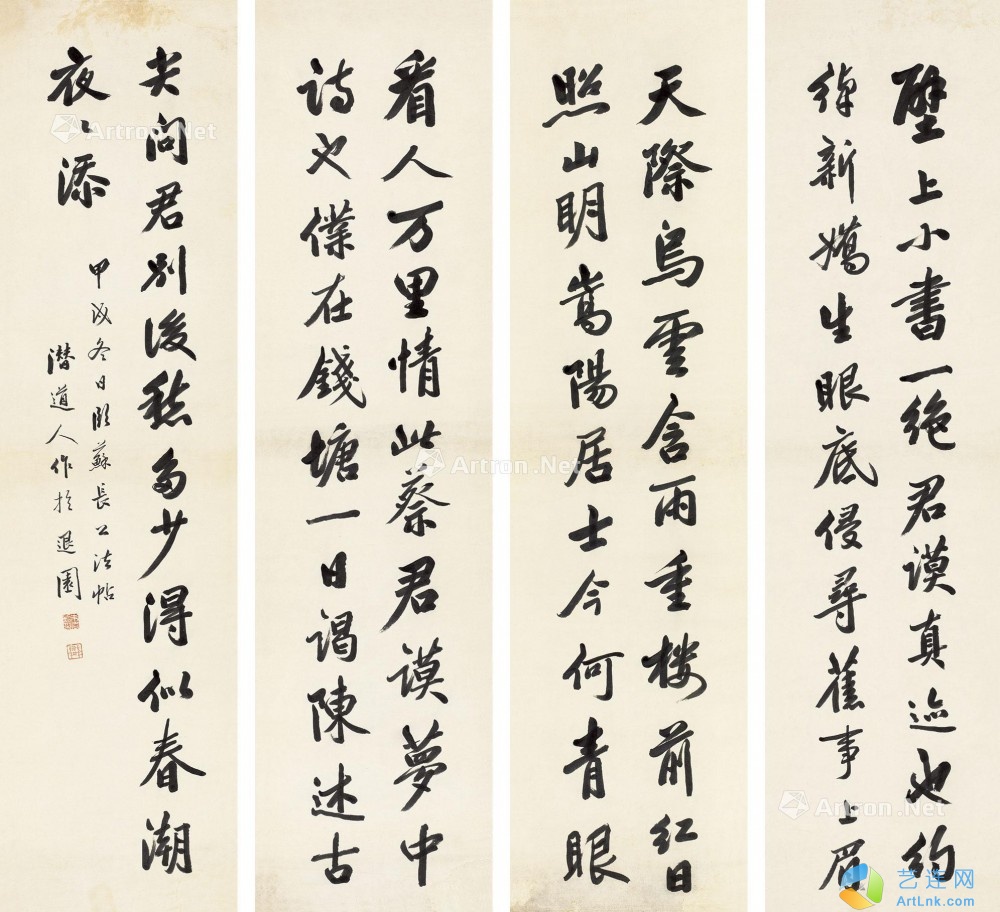 壁上小書一絶君謨真迹也約
綽新嬌生眼底侵尋舊事上眉
天際烏雲含雨重楼前紅日
照山明嵩陽居士今何青眼
看人万里情此蔡君謨夢中
詩也僕在錢塘一日謁陳述古
尖問君别後愁多少得似春潮
夜〻添
甲戌冬日臨蘇長公法帖
潜道人作於退園
Artron.Net
Artron.Net
Artron.Net
Artron.Net
艺连网
ArtLnk.com